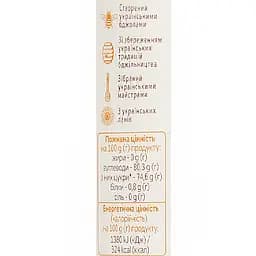 Створений
українськими
бджолами
Зі збереженням
українських
традицій
бджільництва
Зібраний
українськими
майстрами
З українських
ланів
Поживна цінність
на 100 g (г) продукту:
жири - 0 g (г)
вуглеводи - 80,3 g (г)
з них цукри - 74,6 g (г)
білки - 0,8 g (г)
сіль - 0 g (г)
Енергетична цінність
(калорійність)
на 100 g (г) продукту:
1380 kJ (кДж)/
324 kcal (ккал)